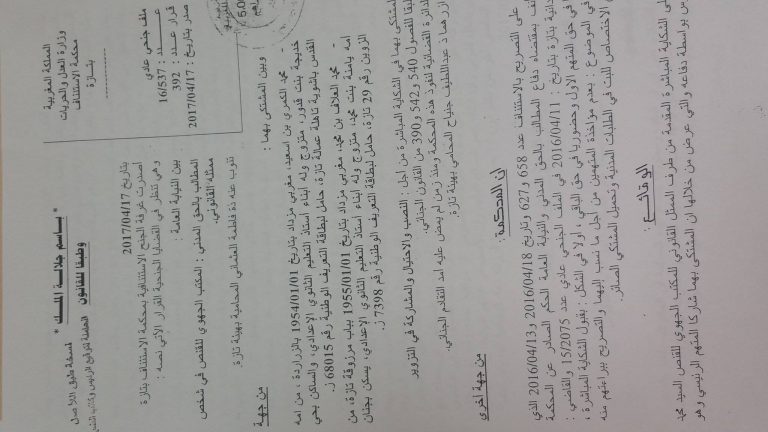 المملكة المغربية
وزارة العدل والحريات
محكمة الاستئناف
بتازة
ملف جنحي عادي
عدد : 16/537
قرار عدد : 392
صدر بتاريخ : 2017/04/17
نسخة طبق الأصل
الحاملة لتوقيع الرئيس وكاتب
* باسم جلالة الملك *
وطبقا للقانون
بتاريخ 2017/04/17
أصدرت غرفة الجنح الاستئنافية بمحكمة الاستئناف بتازة
وهي تنظر في القضايا الجنحية القرار الآتي نصه :
بين النيابة العامة :
المطالب بالحق المدني : المكتب الجهوي للقنص في شخص
ممثله القانوني.
تنوب عنه ذة فاطمة العثماني المحامية بهيئة تازة.
من جهة
وبين المشتكى بهما :
محمد الكمري بن اسعيد، مغربي مزداد بتاريخ 1954/01/01 بالزراردة، من امه
خديجة بنت قدور، متزوج وله أبناء أستاذ التعليم الثانوي الإعدادي، والساكن بحي
القدس باشوية تاهلة عمالة تازة، حامل لبطاقة التعريف الوطنية رقم 68015 ز.
- محمد العلاف بن محمد، مغربي مزداد بتاريخ 1955/01/01 بباب مرزوقة تازة، من
امه يامنة بنت محمد، متزوج وله أبناء أستاذ التعليم الثانوي الإعدادي، يسكن بجنان
الزوين رقم 29 تازة، حامل لبطاقة التعريف الوطنية رقم 7398 ز.
المشتكى بهما في الشكاية المباشرة من أجل : النصب والاحتيال والمشاركة في التزوير
طبقا للفصول 540 و542 و390 من القانون الجنائي.
الدائرة القضائية لنفوذ هذه المحكمة ومنذ زمن لم يمض عليه أمد التقادم الجنائي.
ازرهما ذ عبداللطيف جنياح المحامي بهيئة تازة.
من جهة أخرى
إن المحكمة:
على التصريح بالاستئناف عدد 658 و627 وتاريخ 2016/04/18 و2016/04/13 الذي
بمقتضاه دفاع المطالب بالحق المدني والنيابة العامة الحكم الصادر عن المحكمة
بتازة بتاريخ : 2016/04/11 في الملف الجنحي عادي عدد 15/2075 والقاضي :
في حق المتهم الأول وحضوريا في حق الباقي، أولا في الشكل : بقبول الشكاية المباشرة،
في الموضوع : بعدم مؤاخذة المتهمين من اجل ما نسب إليهما والتصريح ببراءتهم منه
الاختصاص للبت في الطلبات المدنية وتحميل المشتكي الصائر.
الوقائع :
على الشكاية المباشرة المقدمة من طرف الممثل القانوني للمكتب الجهوي للقنص السيد محمد
بواسطة دفاعه والتي عرض من خلالها ان المشتكى بهما شاركا المتهم الرئيسي وهو